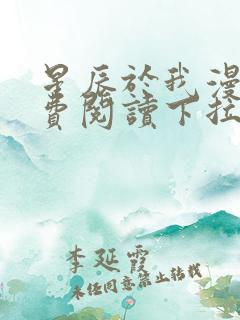 星辰於我漫
費閱讀下拉
李延霞
未经同意禁止转载